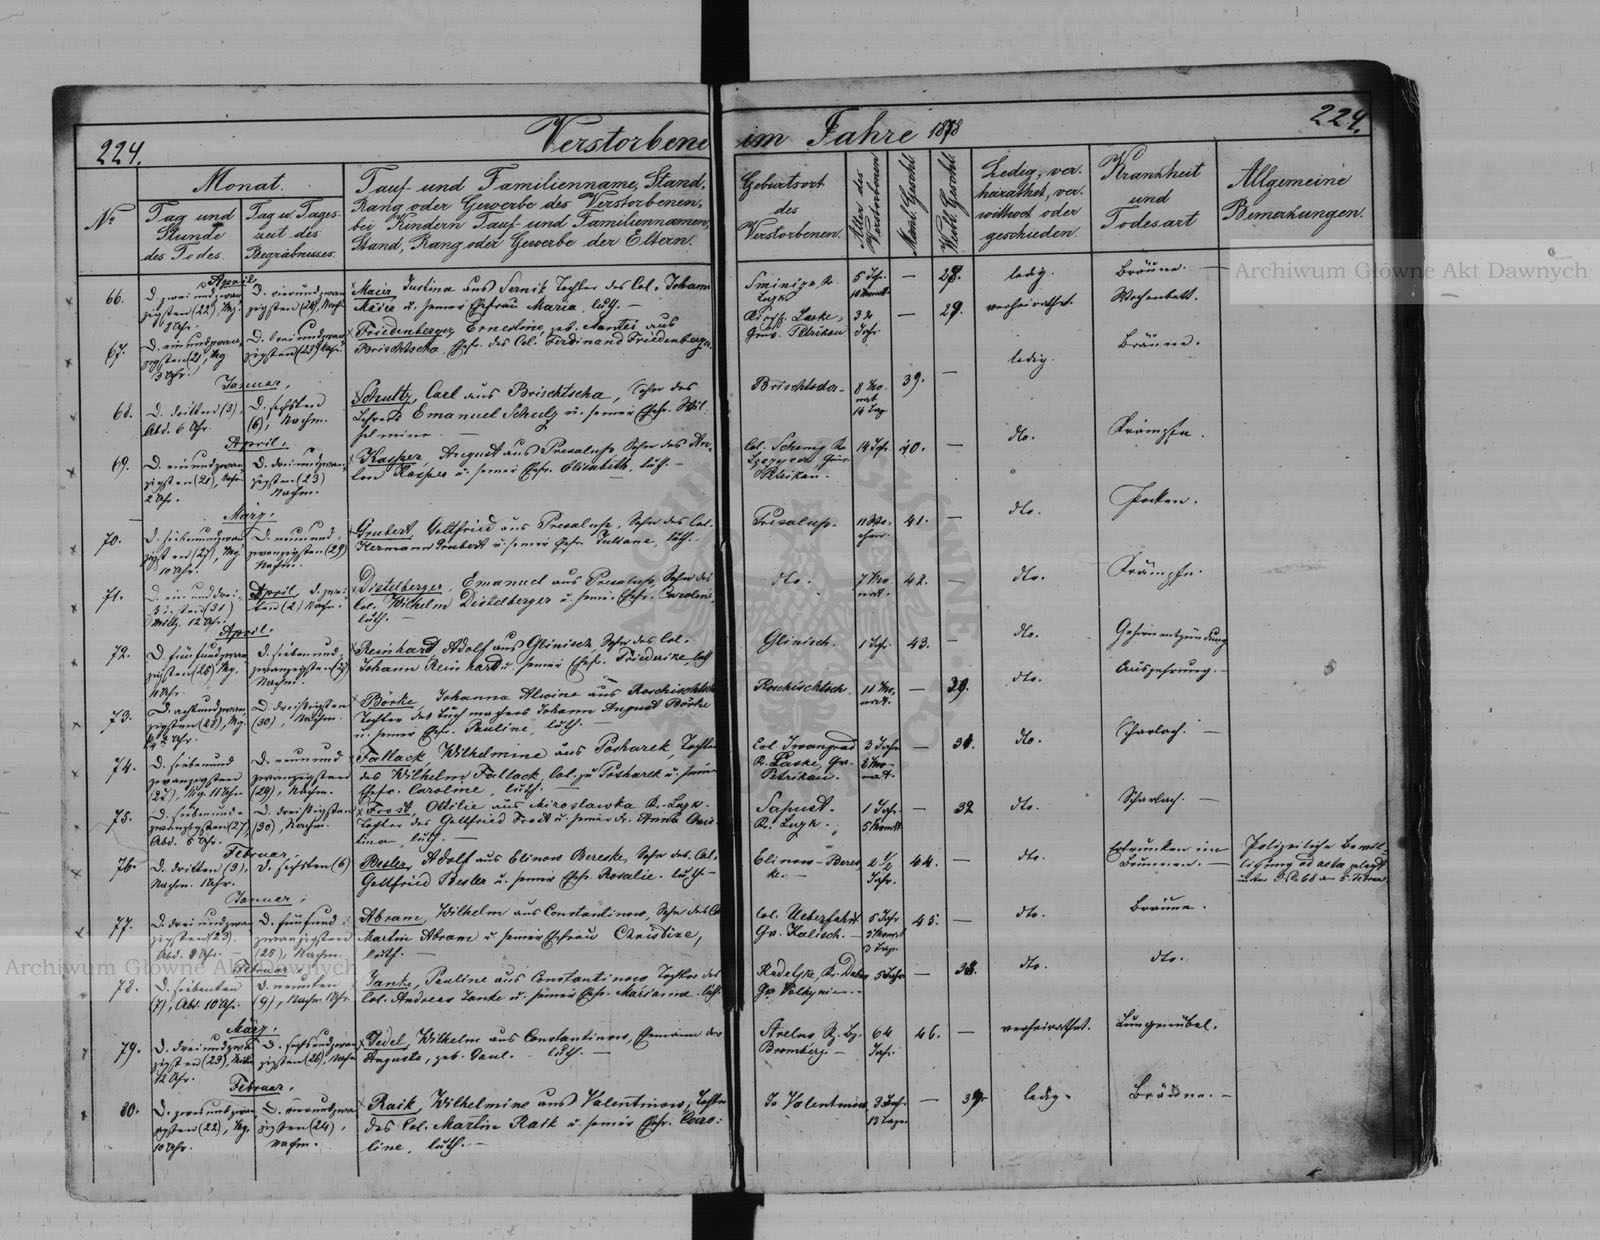 224.
Verstorbene im Jahre 1878
224.
№
Monat.
Tag und Stunde des Todes.
Tag u. Tages-zeit des Begräbnisses.
Tauf- und Familienname, Stand,
Rang oder Gewerbe des Verstorbenen,
bei Kindern Tauf- und Familiennamen,
Stand, Rang oder Gewerbe der Eltern.
Geburtsort
des
Verstorbenen.
Alter des Verstorbenen
Männl. Geschl.
Weibl. Geschl.
Ledig, ver-
heirathet, ver-
wittwet oder
geschieden.
Krankheit
und
Todesart
Allgemeine
Bemerkungen.
Archiwum Główne Akt Dawnych
April
66.
D. zwei und zwan-
zigsten (22), Mg.
D. vierundzwan-
zigsten (24), Nachm.
Maier Justina aus Sernik Tochter des Col. Johann
Maier u. seiner Ehefrau Maria, luth. —
5 Jhr.
—
28.
ledig.
Bräune. —
67.
D. einundzwan-
zigsten (21), Mg
3 Uhr.
Friedenberger, Ernestine, geb. Mantei aus
Brischtscha, Ehefr. des Col. Ferdinand Friedenberger.
Gouv. Petrikau
32
Jahr
—
29.
verheirathet.
Wochenbett.
Januar,
68.
D. dritten (3),
Abd. 6 Uhr.
D. sechsten
(6), Nachm.
Schultz, Carl aus Brischtscha, Sohn des
Emanuel Schulz u. seiner Ehefr. Wil-
helmine. —
Brischtscha
8 Mo-
nat
14 Tag
39.
—
ledig.
Bräune.
April,
69.
D. einundzwan-
zigsten (21), Nachm
2 Uhr.
D. dreiundzwan-
zigsten (23)
Nachm.
Kasper, August aus Presalup, Sohn des
Kasper u. seiner Ehefr. Elisabeth, luth. —
Petrikau.
14 Jhr.
40.
—
dto.
Krämpfe.
März,
70.
D. siebenundzwan-
zigsten (27), Mg
10 Uhr.
D. neunund-
zwanzigsten (29)
Nachm.
Grubert, Gottfried aus Presalup, Sohn des Col.
Hermann Grubert u. seiner Ehefr. Juliane, luth. —
Presalup.
11 Wo-
chen
41.
—
dto.
Pocken.
71.
D. ein und drei-
ßigsten (31)
Mittg. 12 Uhr.
April, d. zwei-
ten (2) Nachm.
Distelberger, Emanuel aus Presalup, Sohn des
Col. Wilhelm Distelberger u. seiner Ehefr. Caroline,
luth. —
dto.
7 Mo-
nat.
42.
—
dto.
Krämpfe.
April.
72.
D. fünfundzwan-
zigsten (25), Mg.
D. siebenund-
zwanzigsten (27)
Nachm.
Reinhard, Adolf aus Glinisch, Sohn des Col.
Johann Reinhard u. seiner Ehefr. Friederike, luth
Glinisch.
1 Jhr.
43.
—
dto.
Gehirnentzündung
73.
D. achtundzwan-
zigsten (28), Mg.
D. dreißigsten
(30), Nachm.
Börke, Johanna Alwine aus Roschischtsch
Tochter des Tuchmachers Johann August Börke
u. seiner Ehefr. Pauline, luth. —
Roschischtsch
11 Mo-
nat.
—
30.
dto.
Auszehrung. —
74.
D. siebenund
zwanzigsten
(27), Mg. 11 Uhr.
D. neunund
zwanzigsten
(29), Nachm.
Fallack, Wilhelmine aus Poscharek, Tochter
des Wilhelm Fallack, Col. zu Poscharek u. seiner
Ehefr. Caroline, luth. —
Col. Iwangrod
Kr. Laske, Gv.
Petrikau.
3 Jahr
8 Mo-
nat.
—
31.
dto.
Scharlach. —
75.
D. siebenund-
zwanzigsten (27),
Abd. 5 Uhr.
D. dreißigsten
(30), Nachm.
Frost, Ottilie aus Miroslawka Kr. Luzk.
Tochter des Gottfried Frost u. seiner Fr. Anna Chris-
tina, luth. —
Sapust.
Kr. Luzk.
1 Jhr.
5 Monat
—
32
dto.
Scharlach. —
Februar,
76.
D. dritten (3),
Nachm. Uhr.
D. sechsten (6)
Besler, Adolf aus Elinow Bereske, Sohn des Col.
Gottfried Besler u. seiner Ehefr. Rosalie. luth. —
Elinow-Beres-
ke. —
2 1/2
Jahr.
44.
—
dto.
Ertrunken im
Brunnen. —
Polizeiliche
Januar,
77.
D. drei und zwan-
zigsten (23).
Abd. 8 Uhr.
D. fünfund-
zwanzigsten
(25), Nachm.
Abram, Wilhelm aus Constantinow, Sohn des Col
Martin Abram u. seiner Ehefrau Christine,
luth. —
Col. Ueberfahrt
Gv. Kalisch. —
5 Jahr
3 Monat
3 Tag.
45.
—
dto.
Bräune.
Archiwum Główne Akt Dawnych
Februar,
78.
D. siebenten
(7), Abd. 10 Uhr.
D. neunten
(9), Nachm. Uhr.
Janke, Pauline aus Constantinow Tochter des
Col. Andreas Janke u. seiner Ehefr. Marianne. luth.
Gv. Volhynien —
5 Jahr
—
38.
dto.
dto.
März,
79.
D. dreiundzwan-
zigsten (23),
12 Uhr.
D. sechsundzwan-
zigsten (26), Nachm
Pedel, Wilhelm aus Constantinow, Ehemann der
Auguste, geb. Paul. — luth. —
Strelno Rg. Bz.
Bromberg. —
64
Jahr.
46.
—
verheirathet.
Lungenübel.
Februar,
80.
D. zweiundzwan-
zigsten (22), Mg.
10 Uhr.
D. vierundzwan-
zigsten (24),
Nachm.
Raik, Wilhelmine aus Valentinow, Tochter
des Col. Martin Raik u. seiner Ehefr. Caro-
line, luth. —
In Valentinow
3 Jahr
13 Tage
—
39.
ledig.
Bräune. —